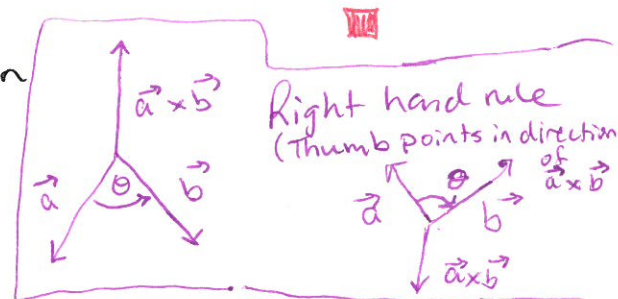 a⃗ × b⃗
a⃗ θ b⃗
Right hand rule
(Thumb points in direction
of
a⃗ × b⃗
θ
a⃗ b⃗
a⃗ × b⃗